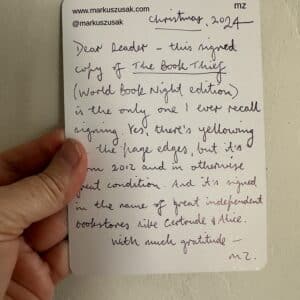 www.markuszusak.com mz
@markuszusak
Christmas, 2024
Dear Reader – this signed
copy of The Book Thief
(World Book Night edition)
is the only one I ever recall
signing. Yes, there's yellowing
the page edges, but it's
2012 and in otherwise
condition. And it's signed
in the name of great independent
bookstores like Gertrude & Alice.
With much gratitude –
mz.